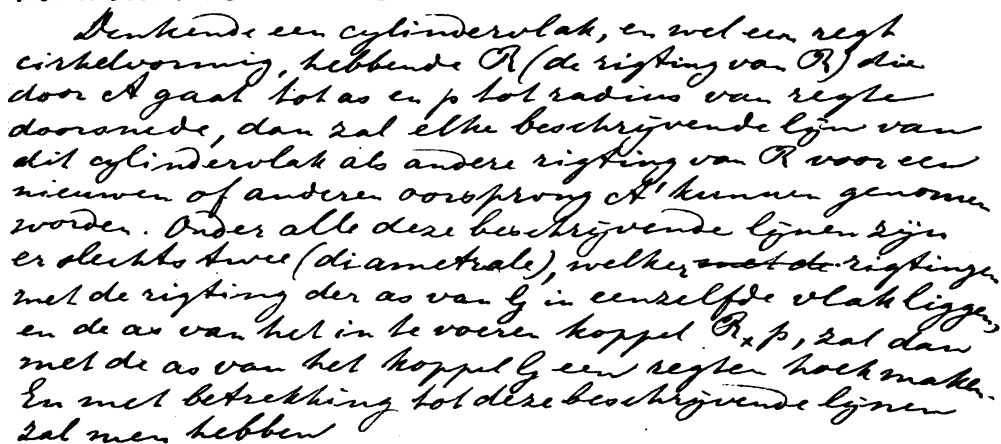 Denkende een cylindervlak, en wel een regt
cirkelvormig, hebbende R (de rigting van R) die
door A gaat tot as en p tot radius van regte
doorsnede, dan zal elke beschrijvende lijn van
dit cylindervlak als andere rigting van R voor een
nieuwen of anderen oorsprong A' kunnen genomen
worden. Onder alle deze beschrijvende lijnen zijn
er slechts twee (diametrale), welker met de rigtingen
met de rigting der as van G in eenzelfde vlak liggen,
en de as van het in te voeren koppel R × p, zal dan
met de as van het koppel G een regten hoek maken.
En met betrekking tot deze beschrijvende lijnen
zal men hebben